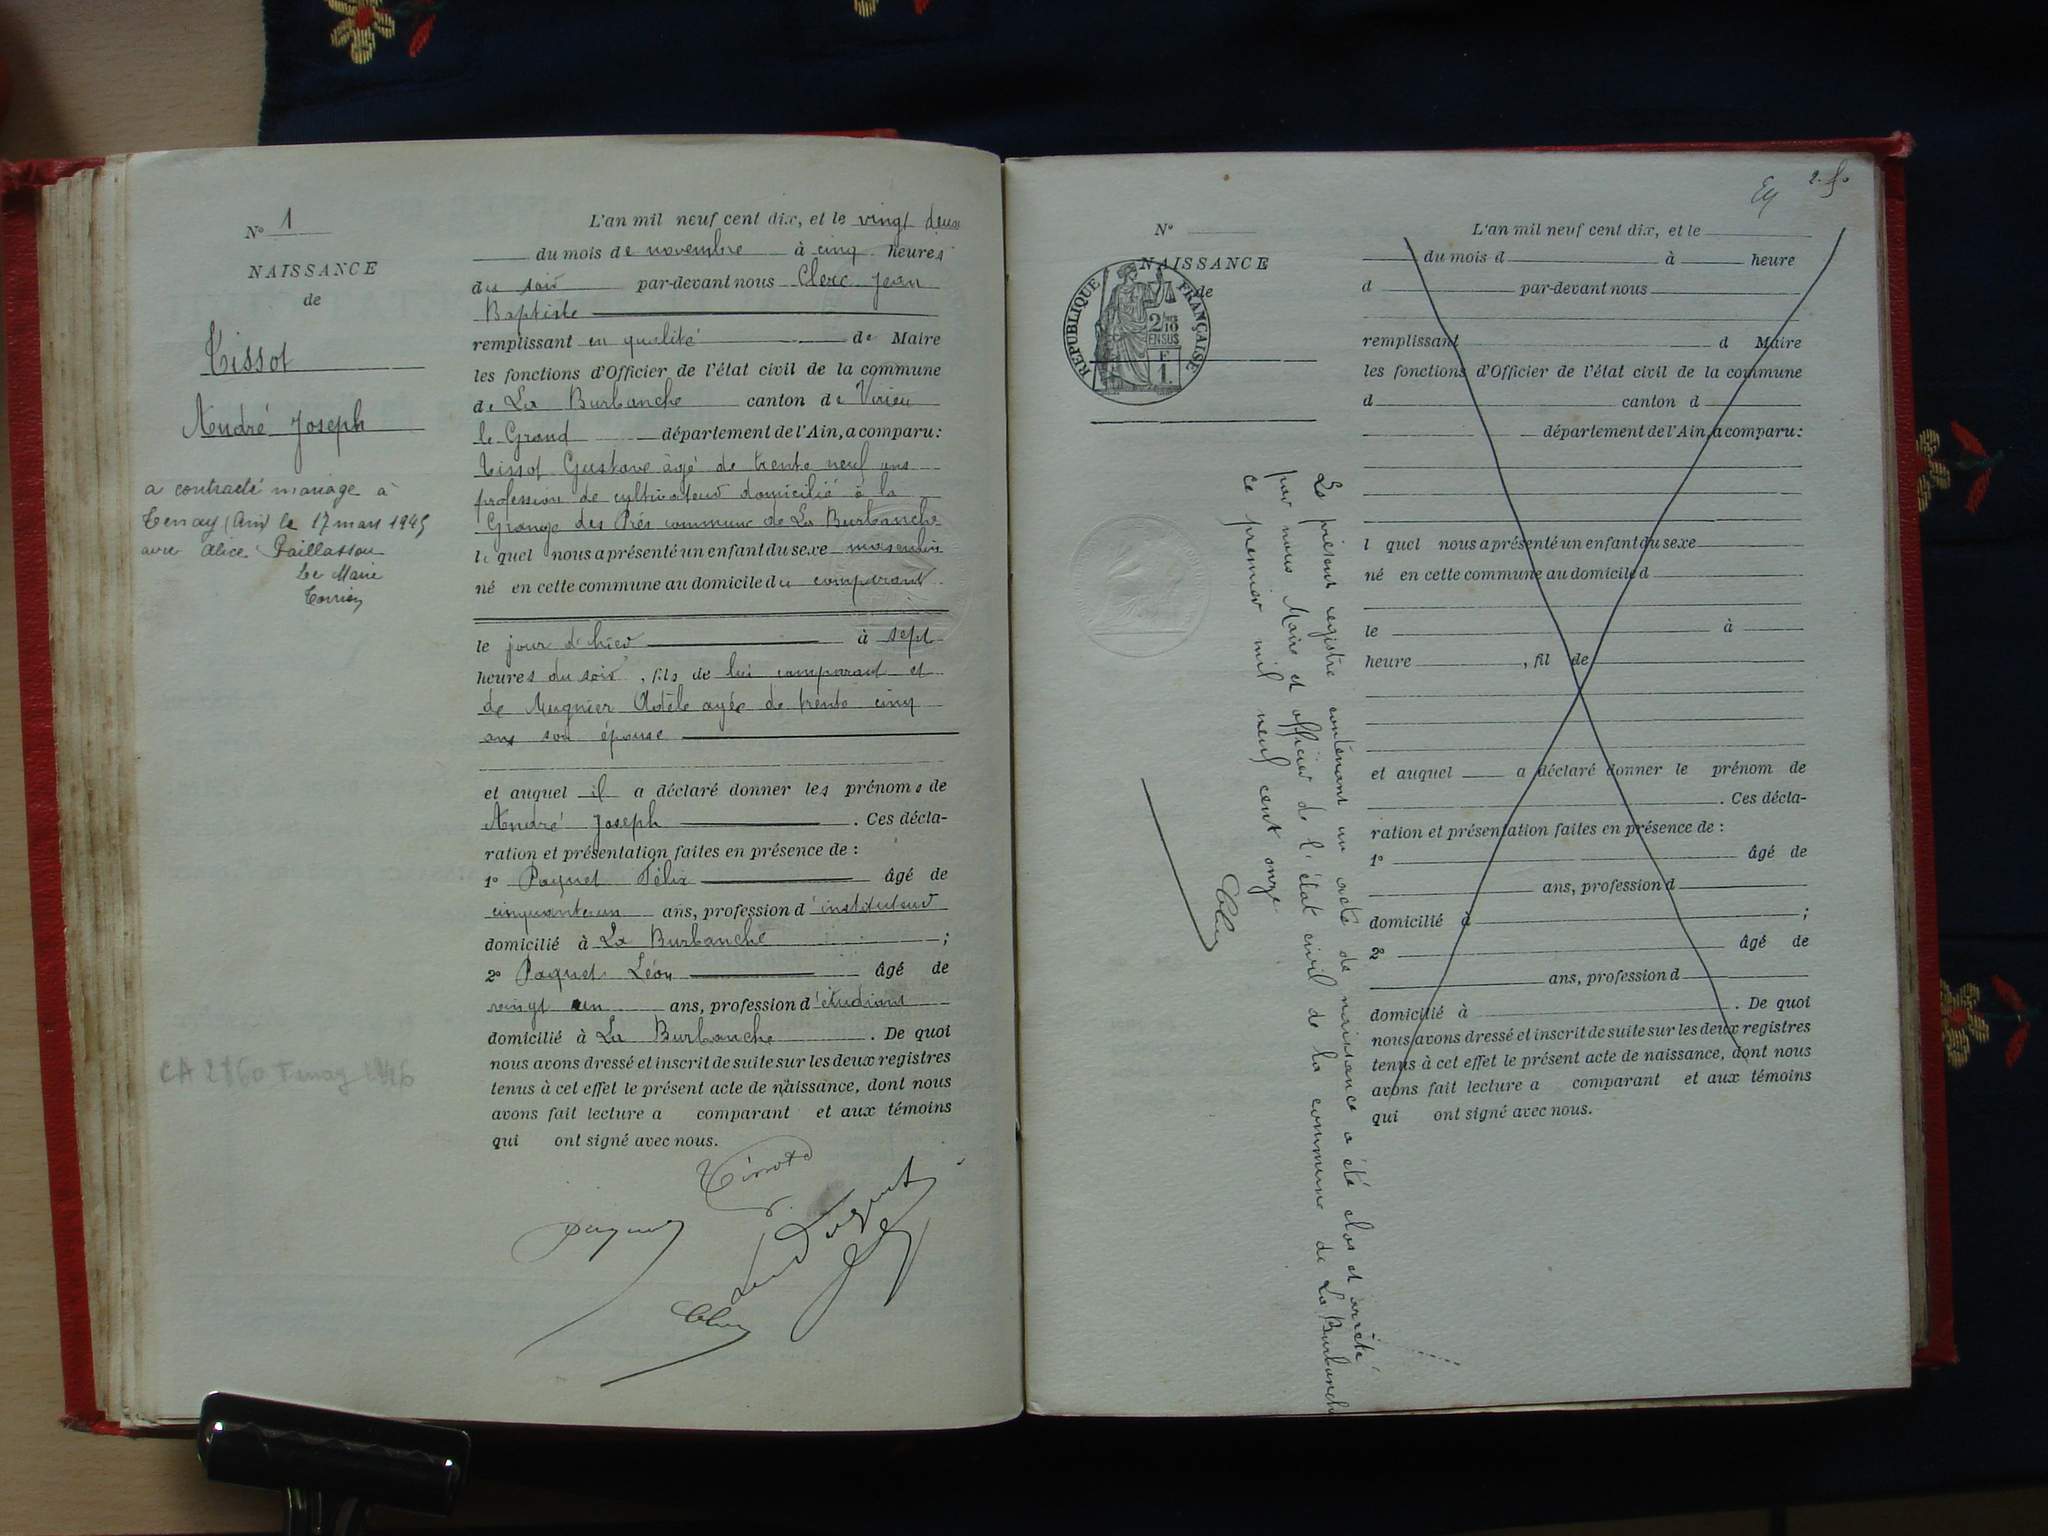 N° 1
NAISSANCE
de
Tissot
André Joseph
a contracté mariage à
Tenay (Ain) le 17 mars 1945
avec Alice Paillasson
Le Maire
CA 2860 Tenay 1946
L'an mil neuf cent dix, et le vingt deux
du mois de novembre à cinq heures
du soir par-devant nous Clerc Jean
Baptiste
remplissant en qualité de Maire
les fonctions d'Officier de l'état civil de la commune
de La Burbanche canton de Virieu
le Grand département de l'Ain, a comparu :
Tissot Gustave âgé de trente neuf ans
profession de cultivateur domicilié à la
Grange des Prés commune de La Burbanche
le quel nous a présenté un enfant du sexe masculin
né en cette commune au domicile du comparant
le jour d'hier à sept
heures du soir, fils de lui comparant et
de Mugnier Adèle agée de trente cinq
ans son épouse
et auquel il a déclaré donner les prénoms de
André Joseph . Ces décla-
ration et présentation faites en présence de :
1° Paquet Félix âgé de
cinquante un ans, profession d'instituteur
domicilié à La Burbanche ;
2° Paquet Léon âgé de
vingt un ans, profession d'étudiant
domicilié à La Burbanche . De quoi
nous avons dressé et inscrit de suite sur les deux registres
tenus à cet effet le présent acte de naissance, dont nous
avons fait lecture a comparant et aux témoins
qui ont signé avec nous.
Tissot
Paquet
Léon Paquet
Clerc
2.
N°
NAISSANCE
de
REPUBLIQUE FRANÇAISE
2/10
EN SUS
F
1.
L'an mil neuf cent dix, et le
du mois d à heure
d par-devant nous
remplissant d Maire
les fonctions d'Officier de l'état civil de la commune
d canton d
département de l'Ain, a comparu :
l quel nous a présenté un enfant du sexe
né en cette commune au domicile d
le à
heure , fil de
et auquel a déclaré donner le prénom de
. Ces décla-
ration et présentation faites en présence de :
1° âgé de
ans, profession d
domicilié à ;
2 âgé de
ans, profession d
domicilié à . De quoi
nous avons dressé et inscrit de suite sur les deux registres
tenus à cet effet le présent acte de naissance, dont nous
avons fait lecture a comparant et aux témoins
qui ont signé avec nous.
Le présent registre contenant un acte de naissance a été clos et arrêté
par nous Maire et officier de l'état civil de la commune de La Burbanche
ce premier mil neuf cent onze
Clerc